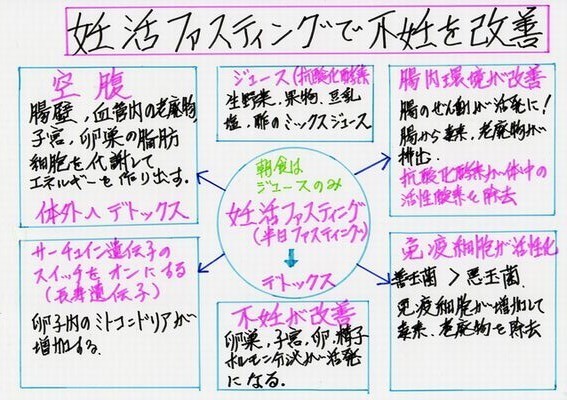 妊活ファスティングで不妊を改善
空腹
腸壁、血管内の老廃物、
子宮、卵巣の脂肪
細胞を代謝して
エネルギーを作り出す。
体外へデトックス
ジュース(抗酸化酵素
生野菜、果物、豆乳
塩、酢のミックスジュース
腸内環境が改善
腸のぜん動が活発に!
腸から毒素、老廃物が
排出.
抗酸化酵素が体中の
活性酸素を除去
朝食は
ジュースのみ
妊活ファスティング
(半日ファスティング)
↓
デトックス
サーチュイン遺伝子の
スイッチをオンにする
(長寿遺伝子)
卵子内のミトコンドリアが
増加する.
不妊が改善
卵巣、子宮、卵、精子
ホルモン分泌が活発
になる.
免疫細胞が活性化
善玉菌 > 悪玉菌.
免疫細胞が増加して
毒素、老廃物を除去